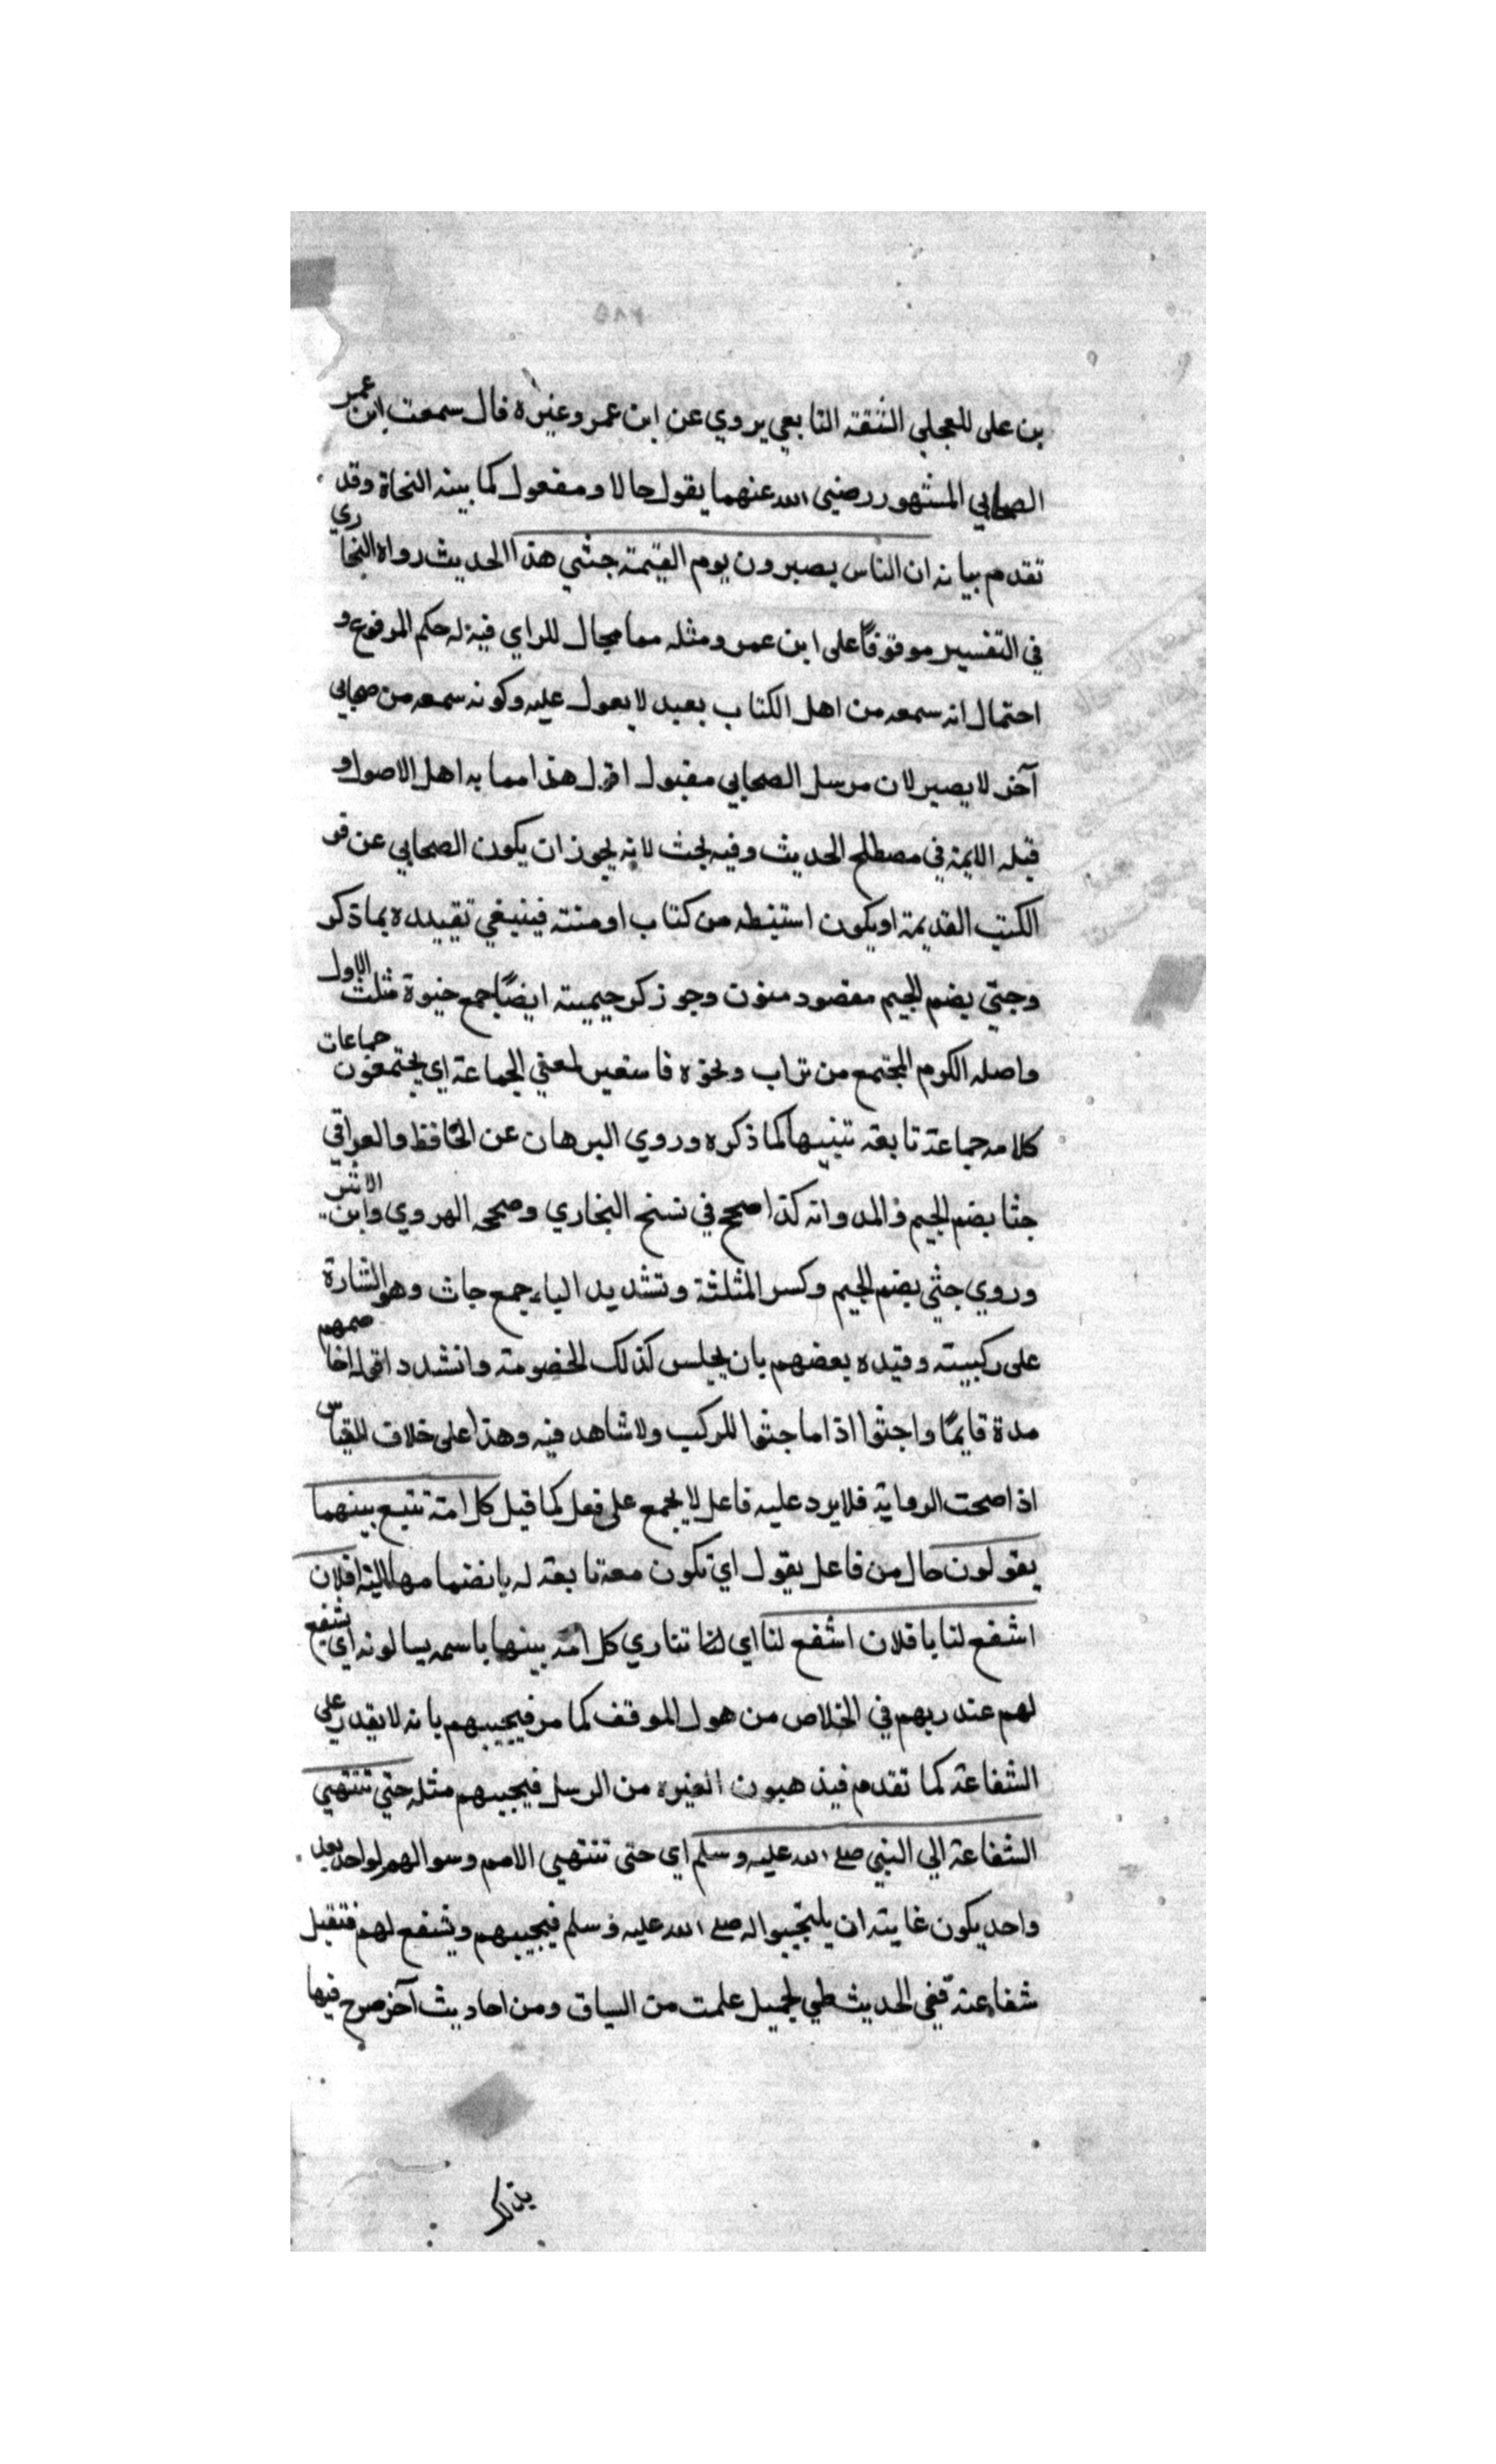 ٢٨٥
بن على العجلي الثقة التابعي يروي عن ابن عمر وغيره قال سمعت ابن عمر
الصحابي المشهور رضي الله عنهما يقول حالا ومفعول كما بينه النحاة وقد
تقدم بيانه ان الناس يصيرون يوم القيمة جثي هذا الحديث رواه البخاري
في التفسير موقوفاً على ابن عمر ومثله مما مجال للراي فيه له حكم المرفوع و
احتمال انه سمعه من اهل الكتاب بعيد لا يعول عليه وكونه سمعه من صحابي
آخر لا يصير لان مرسل الصحابي مقبول اقول هذا مما به اهل الاصول و
قبله الايمة في مصطلح الحديث وفيه بحث لانه يجوز ان يكون الصحابي عن قر
الكتب القديمة او يكون استنبطه من كتاب او سنة فينبغي تقييده بما ذكر
وجثي بضم الجيم مقصود منون وجوز كر جيميته ايضاً جمع جثوة مثلث الاول
واصله الكوم المجتمع من تراب ونحوه فاستعير لمعني الجماعة اي يجتمعون جماعات
كلامه جماعة تابعة تنبيها كما ذكره وروي البرهان عن الحافظ والعراقي
جثا بضم الجيم والمد وانه كذا صحح في نسخ البخاري وصححه الهروي وابن الاثير
وروي جثي بضم الجيم وكسر المثلثة وتشديد الياء جمع جاث وهو الشارة
على ركبيته وقيده بعضهم بان يجلس كذلك للخصومة وانشدد اقله اخاصمهم
مدة قايمًا واجثوا اذا ما جثوا للركب ولا شاهد فيه وهذا على خلاف القياس
اذا صحت الرواية فلا يرد عليه فاعل لا يجمع على فعل كما قيل كل امة تتبع بينهما
يقولون حال من فاعل يقول اي تكون معه تابعة له بانضمامها اليه افلان
اشفع لنا يا فلان اشفع لنا اي لنا تناري كل امة بينها باسمه يسالونه اي يشفع
لهم عند ربهم في الخلاص من هول الموقف كما مر فيجيبهم بانه لا يقدر علي
الشفاعة كما تقدم فيذهبون الغيره من الرسل فيجيبهم مثله حتي تنتهي
الشفاعة الي النبي صلى الله عليه وسلم اي حتى تنتهي الامم وسوالهم لواحد بعد
واحد يكون غايته ان يلتجيوا له صلى الله عليه وسلم فيجيبهم ويشفع لهم فتقبل
شفاعته ففي الحديث طي لجميل علمت من السياق ومن احاديث آخر صرح فيها
بذلك